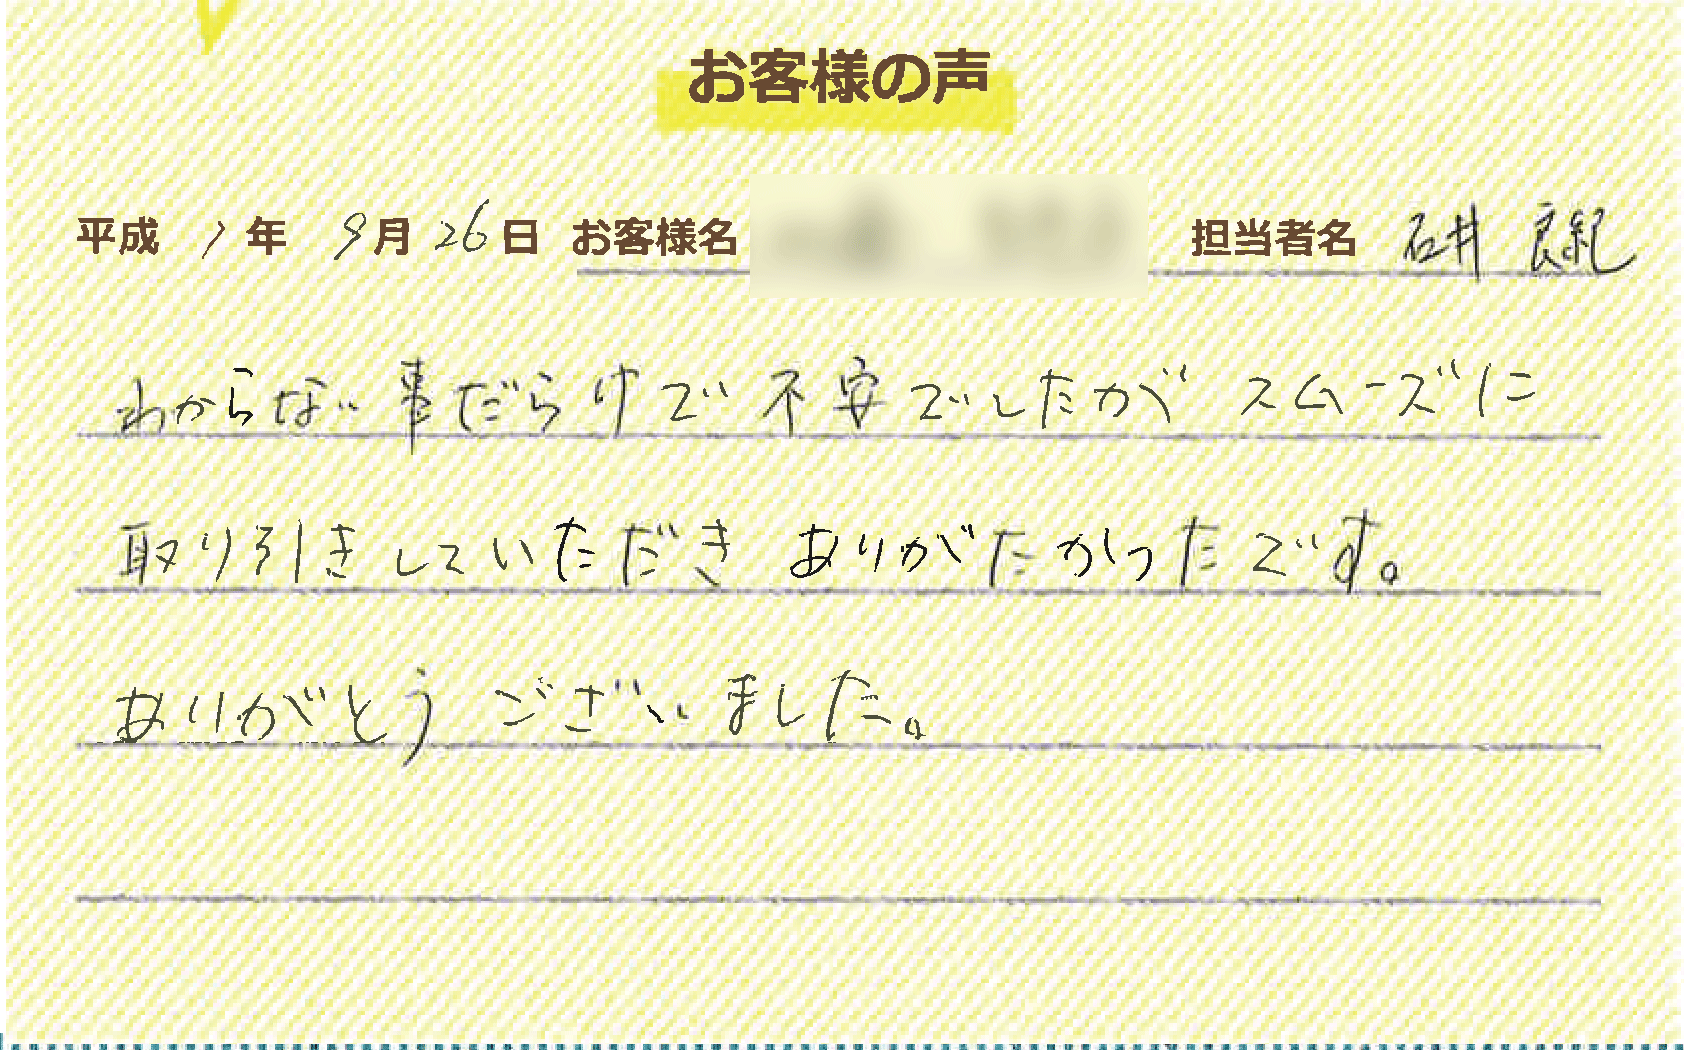 お客様の声
平成 1年 9月 26日 お客様名 担当者名 石井 良紀
わからない事だらけで不安でしたがスムーズに
取り引きしていただきありがたかったです。
ありがとうございました。